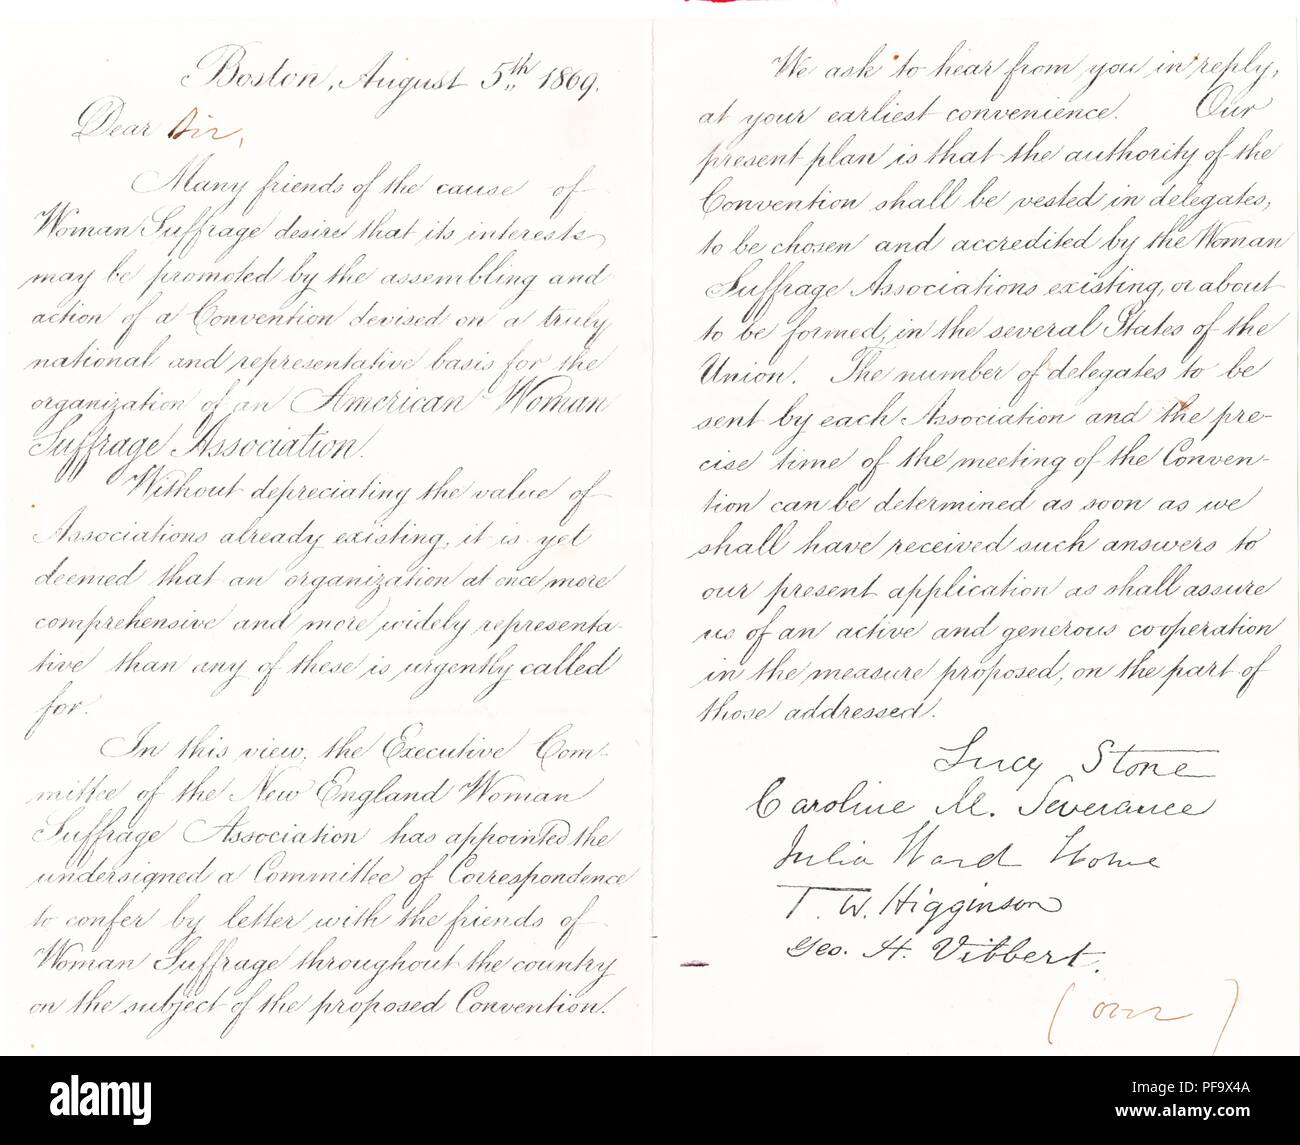 Boston, August 5th 1869.
Dear Sir,
Many friends of the cause of
Woman Suffrage desire that its interests
may be promoted by the assembling and
action of a Convention devised on a truly
national and representative basis for the
organization of an American Woman
Suffrage Association.
Without depreciating the value of
Associations already existing, it is yet
deemed that an organization at once more
comprehensive and more widely representa-
tive than any of these is urgently called
for.
In this view, the Executive Com-
mittee of the New England Woman
Suffrage Association has appointed the
undersigned a Committee of Correspondence
to confer by letter with the friends of
Woman Suffrage throughout the country
on the subject of the proposed Convention.
We ask to hear from you in reply,
at your earliest convenience. Our
present plan is that the authority of the
Convention shall be vested in delegates,
to be chosen and accredited by the Woman
Suffrage Associations existing, or about
to be formed, in the several States of the
Union. The number of delegates to be
sent by each Association and the pre-
cise time of the meeting of the Conven-
tion can be determined as soon as we
shall have received such answers to
our present application as shall assure
us of an active and generous cooperation
in the measure proposed, on the part of
those addressed.
Lucy Stone
Caroline M. Severance
Julia Ward Howe
T. W. Higginson
Geo. H. Vibbert.
(over)
alamy
Image ID: PF9X4A
www.alamy.com